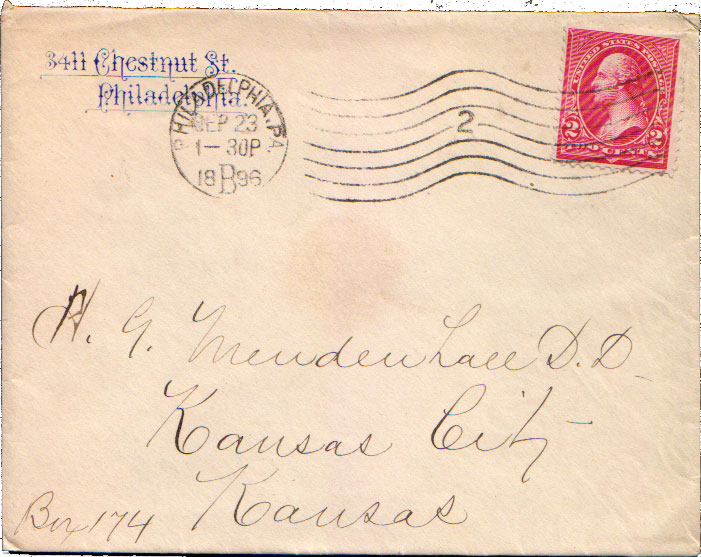 3411 Chestnut St.
Philadelphia.
PHILADELPHIA, PA.
SEP 23
1-30P
18 B 96
2
UNITED STATES POSTAGE
2 TWO CENTS 2
H. G. Mendenhall D.D.
Kansas City
Kansas
Box 174